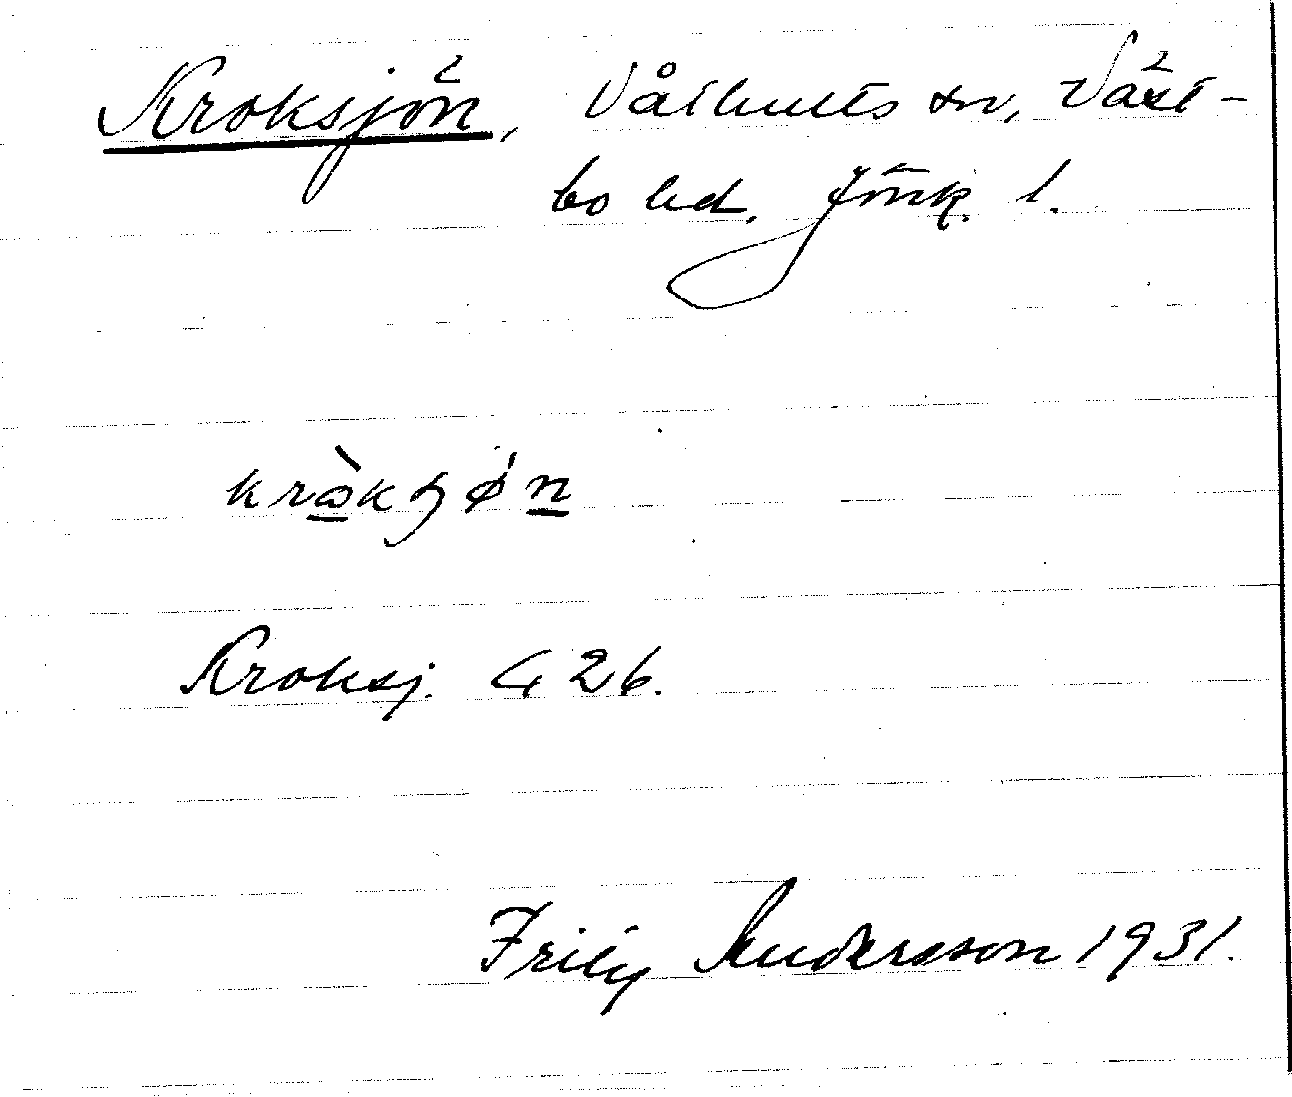 Kroksjön, Våthults sn, Väst-
bo hd. Jönk. l.
kròkʂøn
Kroksj. G 26.
Fritz Andersson 1931.